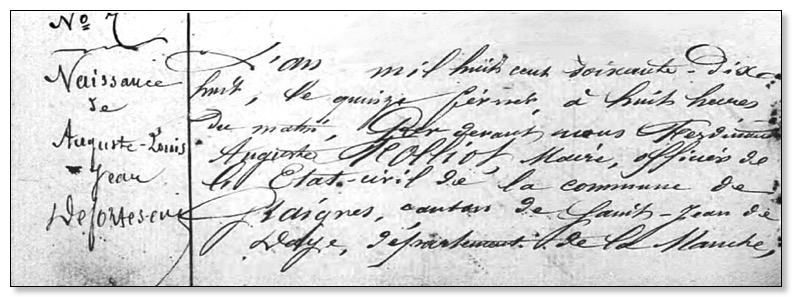 N° 7
Naissance
de
Auguste-Louis
Jean
L'an mil huit cent soixante-dix-
huit, le quinze février à huit heures
du matin, Par devant nous Ferdinand
Auguste Folliot, Maire, officier de
l'Etat-civil de la commune de
Graignes, canton de Saint-Jean de
Daye, département de la Manche,